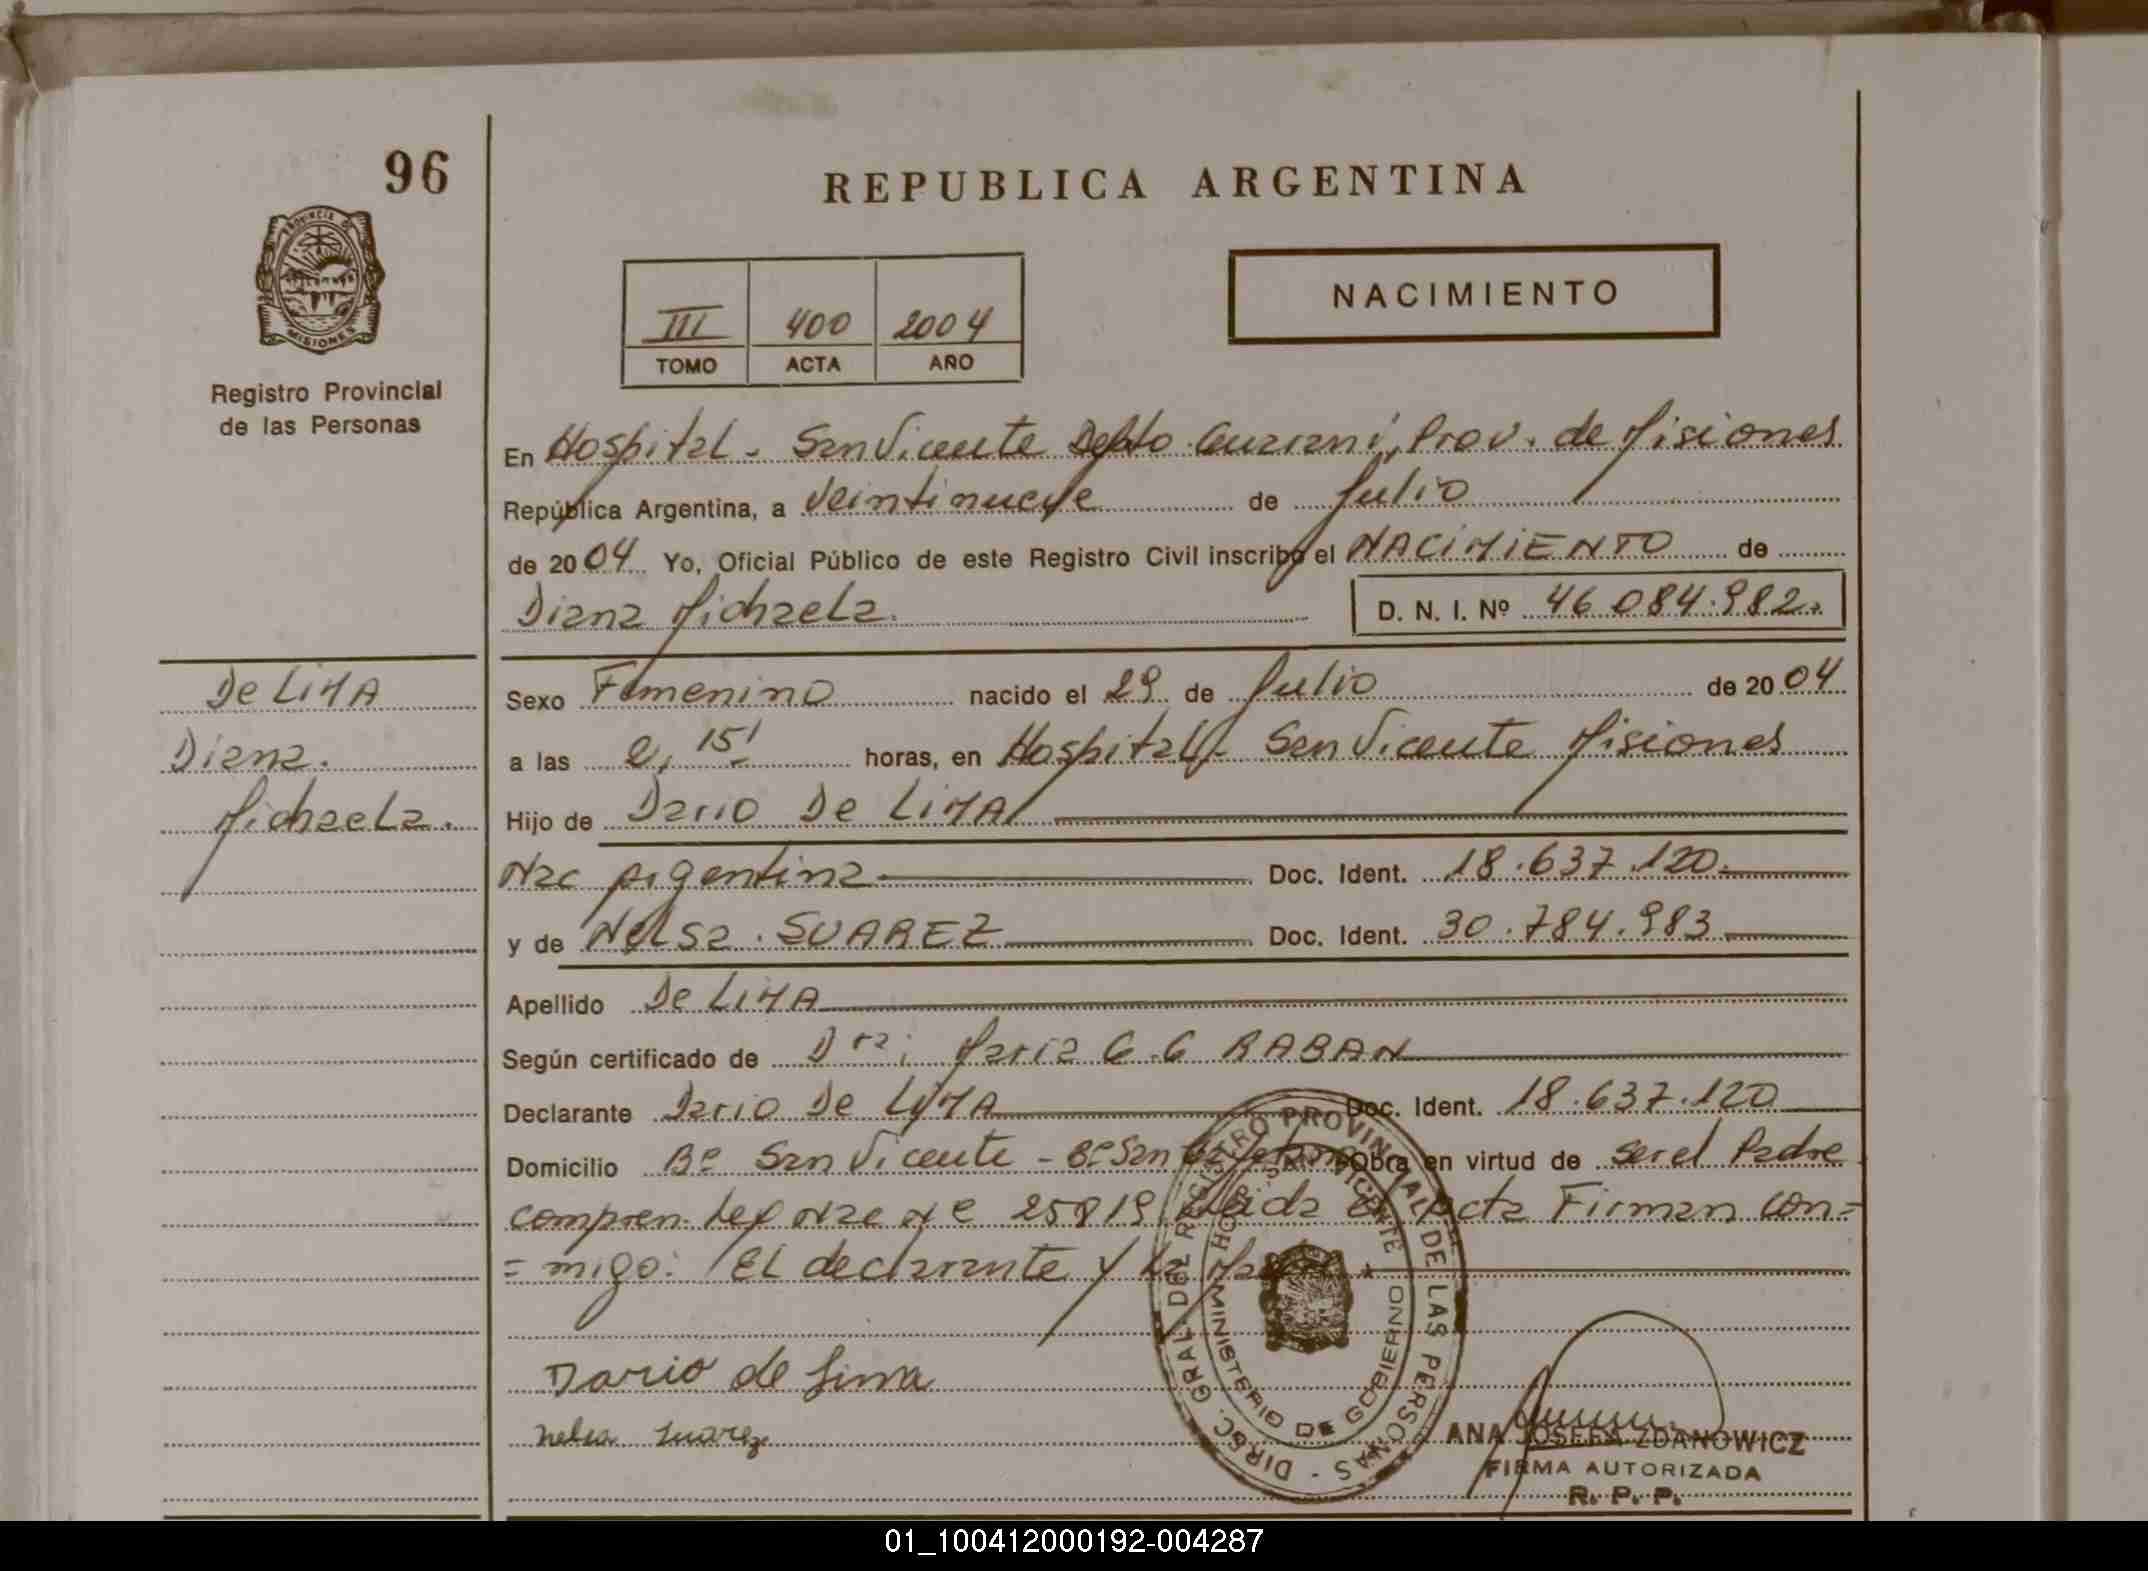 96
REPUBLICA ARGENTINA
PROVINCIA DE
MISIONES
Registro Provincial
de las Personas
III 400 2004
TOMO ACTA AÑO
NACIMIENTO
En Hospital - San Vicente Depto Guarani, Prov. de Misiones
República Argentina, a Veintinueve de Julio
de 2004 Yo, Oficial Público de este Registro Civil inscribo el NACIMIENTO de
Diana Michaela. D. N. I. Nº 46.084.982.
De LIMA
Diana.
Michaela.
Sexo Femenino nacido el 29 de Julio de 2004
a las 2,15' horas, en Hospital - San Vicente Misiones
Hijo de Dario De LIMA
Nac Argentina Doc. Ident. 18.637.120.
y de Nelsa. SUAREZ Doc. Ident. 30.784.983
Apellido De LIMA
Según certificado de Dra: Maria G.G RABAN
Declarante Dario De LIMA Doc. Ident. 18.637.120
Domicilio Bº San Vicente - Bº San Obra en virtud de ser el Padre
compren. Nac Nº 25819 Leida el Acta Firman con=
=migo: El declarante y la Madre
Dario de Lima
Nelsa Suarez
DIREC. GRAL. DEL REGISTRO PROVINCIAL DE LAS PERSONAS
HOSP. SAN VICENTE
MINISTERIO DE GOBIERNO
ANA JOSEFA ZDANOWICZ
FIRMA AUTORIZADA
R. P. P.
01_100412000192-004287